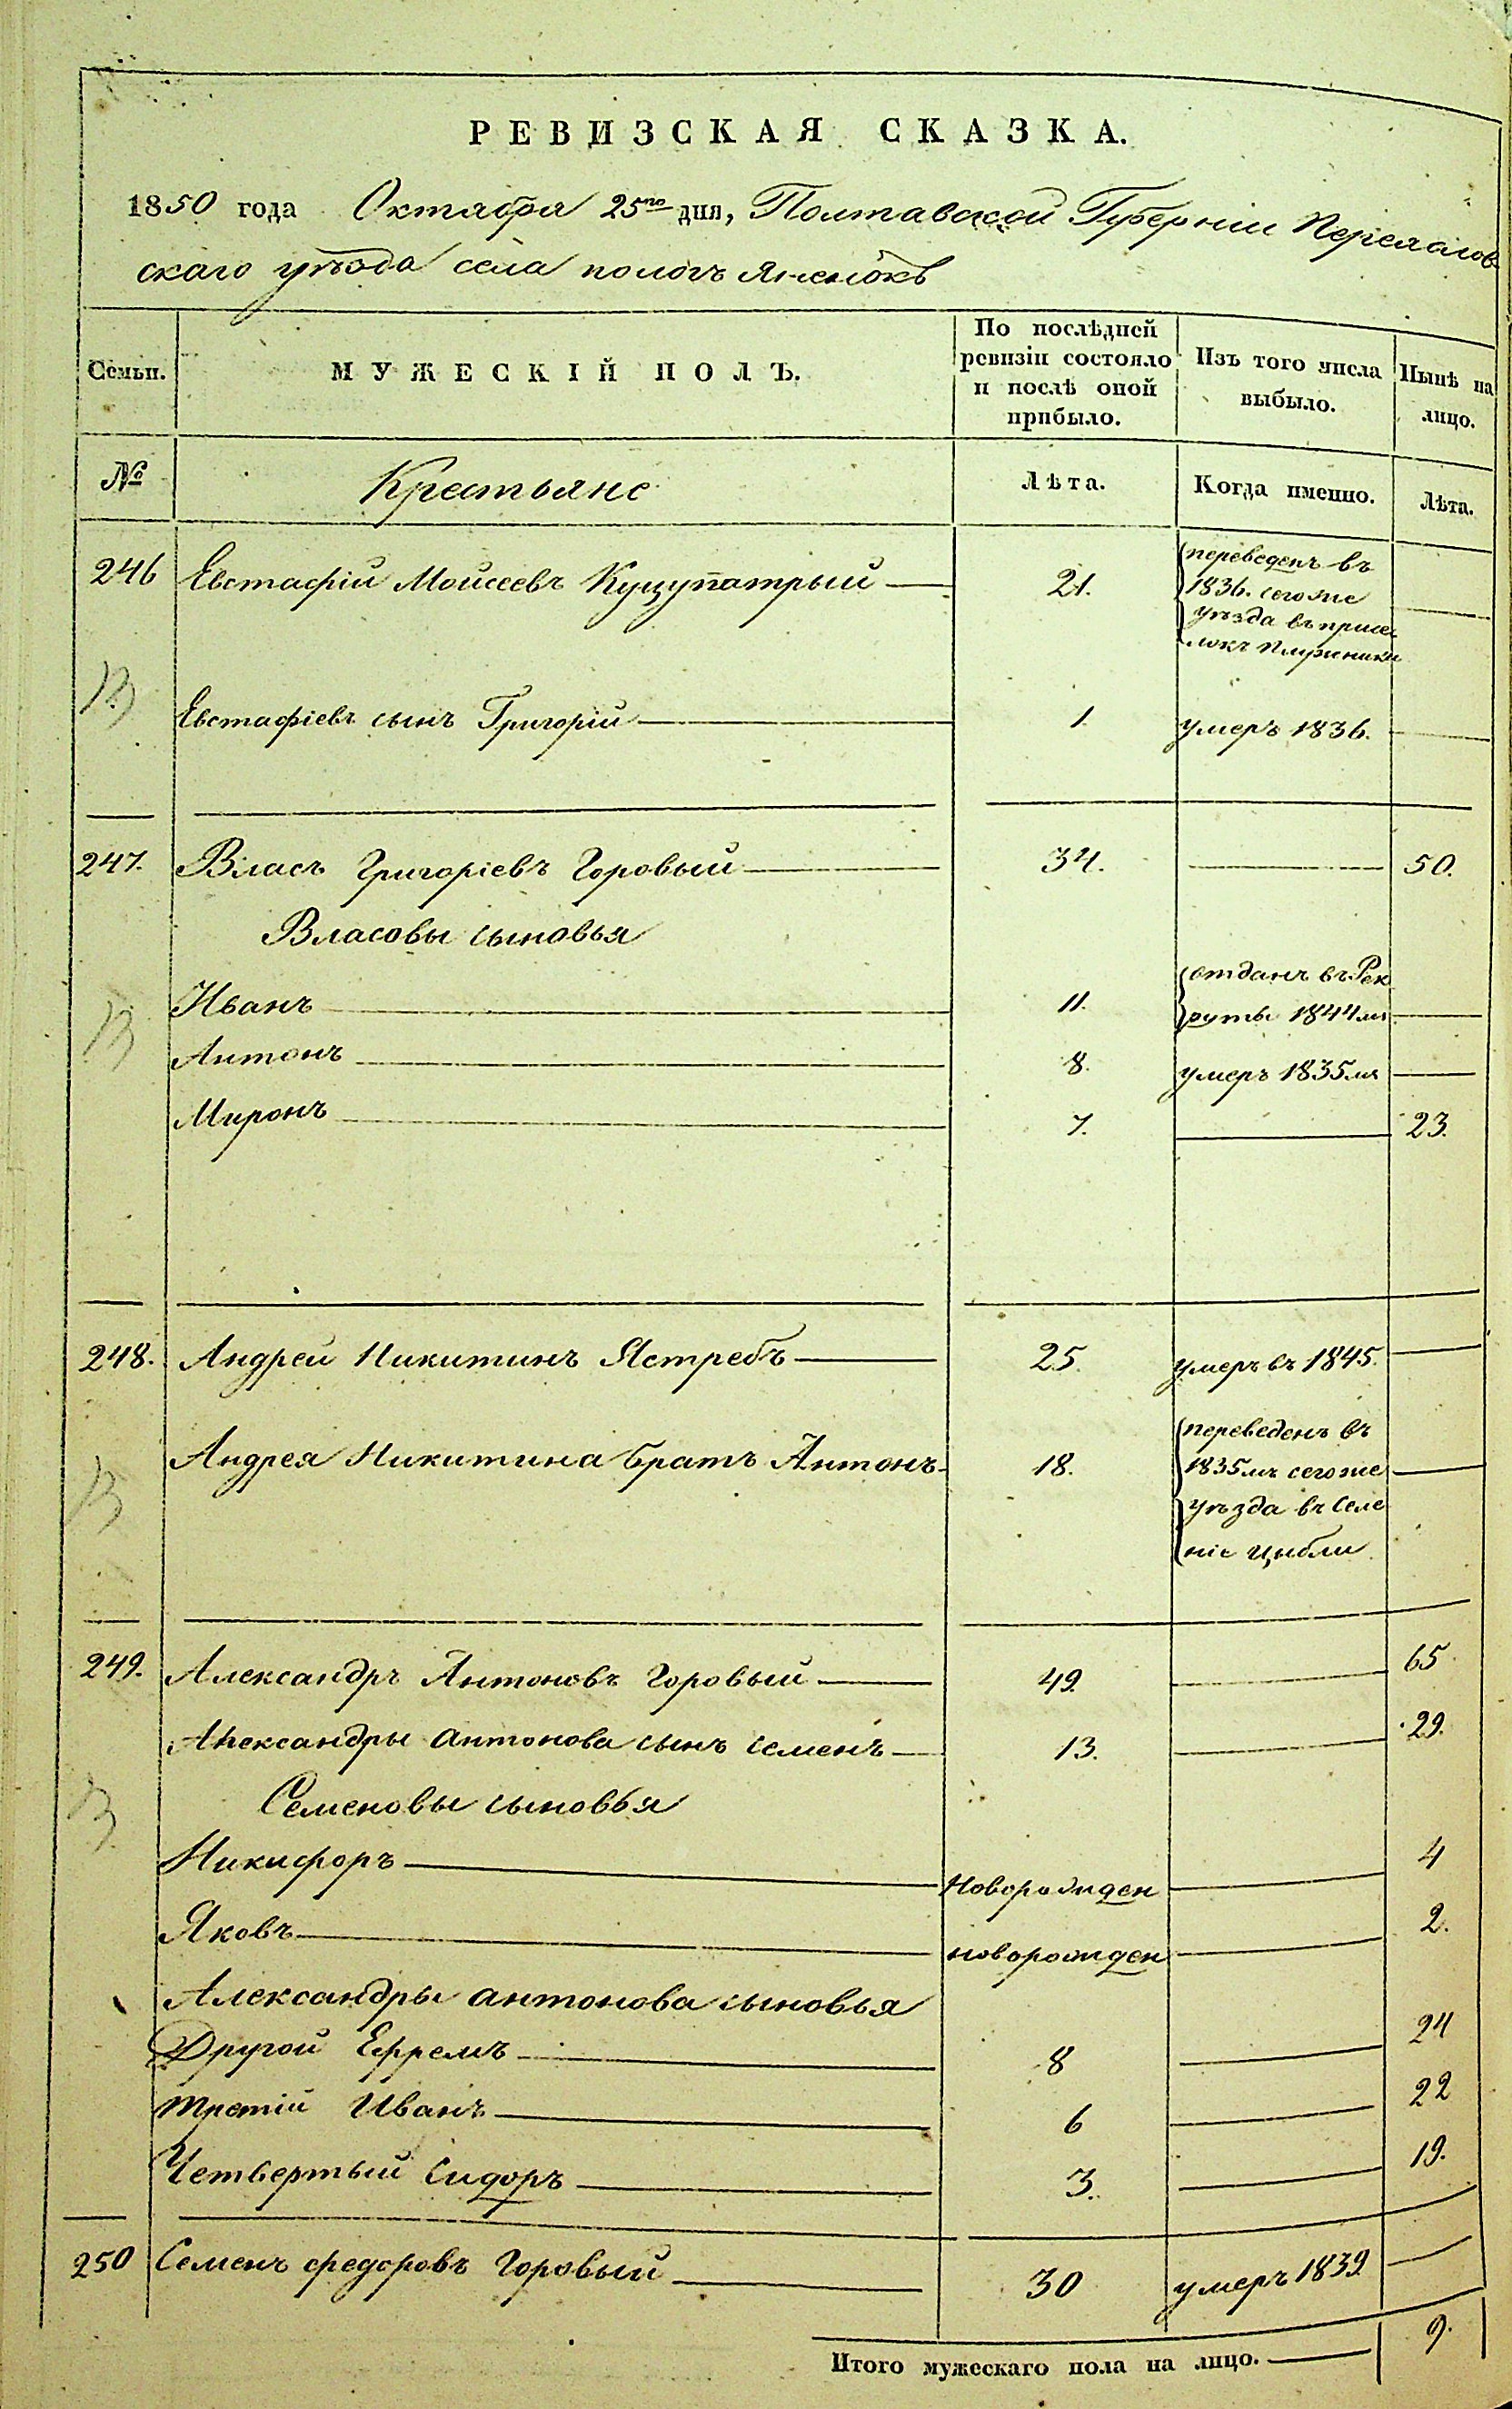 РЕВИЗСКАЯ СКАЗКА.
1850 года Октября 25го дня, Полтавской Губерніи Переяслов
скаго уѣзда села пологъ Яненокъ
Семьи.
МУЖЕСКІЙ ПОЛЪ.
По послѣдней
ревизіи состояло
и послѣ оной
прибыло.
Изъ того числа
выбыло.
Нынѣ на
лицо.
№
Крестьяне
Лѣта.
Когда именно.
Лѣта.
246 Евстафій Моисеевъ 21. переведенъ въ
1836. сегоже
уѣзда въ присе
локъ
Евстафіевъ сынъ Григорій 1. умеръ 1836.
247. Власъ Григоріевъ Горовый 34. 50.
Власовы сыновья
Иванъ 11. отданъ въ Рек
руты 1844мъ
Антонъ 8. умеръ 1835мъ
Миронъ 7. 23.
248. Андрей Никитинъ Ястребъ 25. умеръ въ 1845.
Андрея Никитина братъ Антонъ 18. переведенъ въ
1835мъ сегоже
уѣзда въ Селе
ніе Цибли
249. Александръ Антоновъ Горовый 49. 65
Александры Антонова сынъ Семенъ 13. 29.
Семеновы сыновья
Никифоръ Новорожден 4
Яковъ новорожден 2.
Александры антонова сыновья
Другой Ефремъ 8 24
третій Иванъ 6 22
Четвертый Сидоръ 3. 19.
250 Семенъ федоровъ Горовый 30 умеръ 1839
Итого мужескаго пола на лицо. 9.